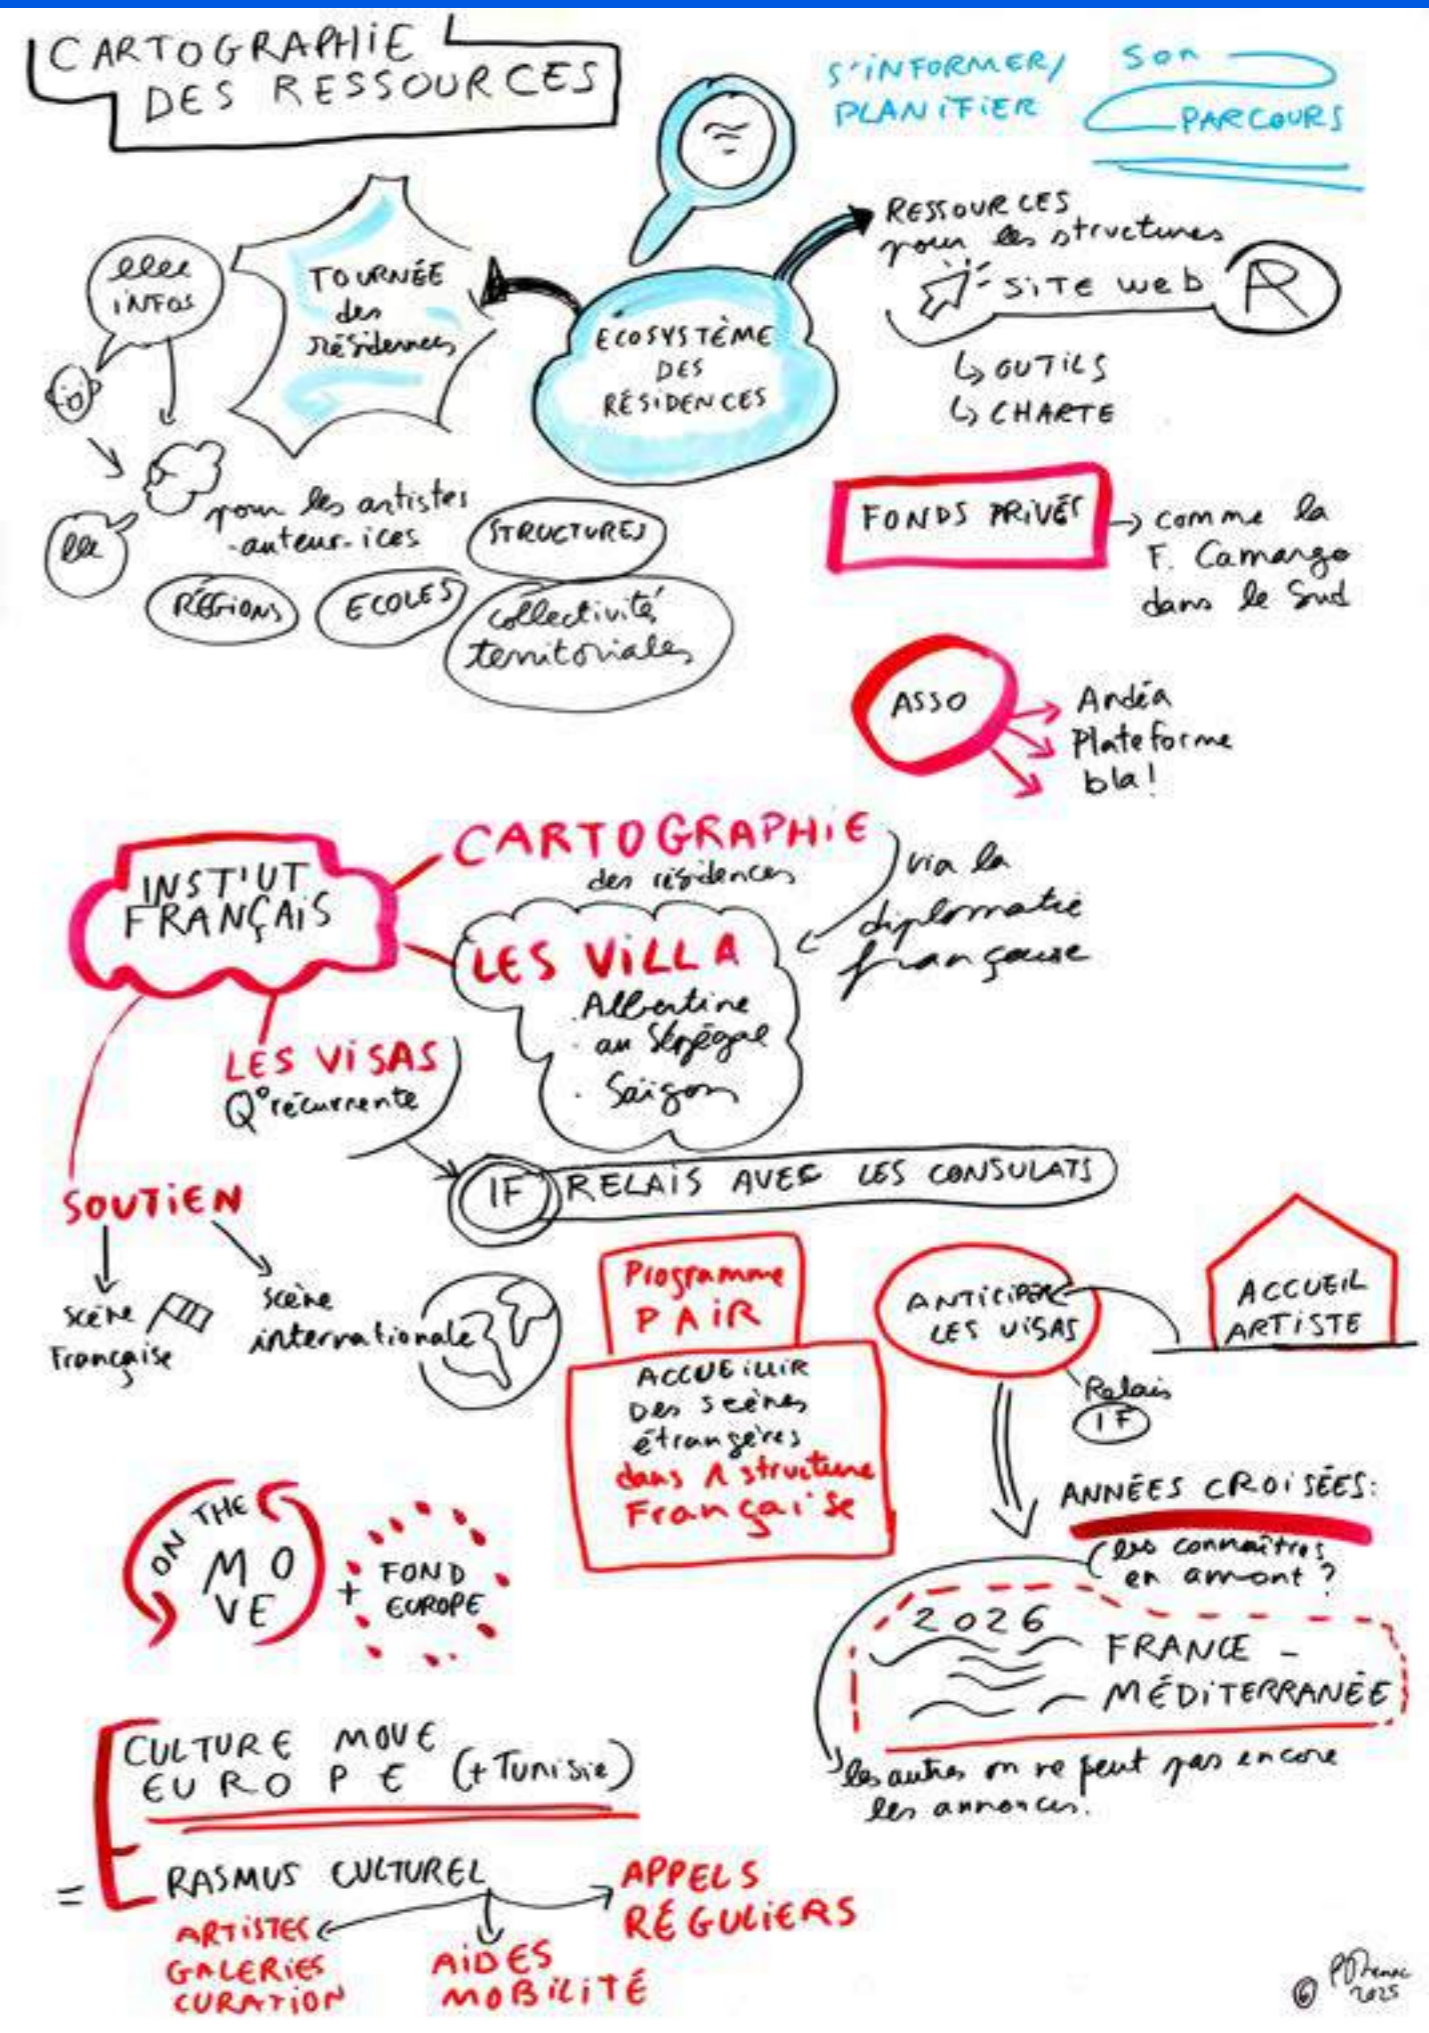 CARTOGRAPHIE
DES RESSOURCES
S'INFORMER/
PLANIFIER
SON
PARCOURS
RESSOURCES
pour les structures
SITE WEB
AR
↳ OUTILS
↳ CHARTE
INFOS
TOURNÉE
des
résidences
ÉCOSYSTÈME
DES
RÉSIDENCES
pour les artistes
-auteur-ices
STRUCTURES
RÉGIONS
ECOLES
collectivités
territoriales
FONDS PRIVÉS
→ comme la
F. Camargo
dans le Sud
ASSO
Andéa
Plateforme
bla!
INST'UT
FRANÇAIS
CARTOGRAPHIE
des résidences
via la
diplomatie
française
LES VILLA
. Albertine
. au Sénégal
. Saïgon
LES VISAS
Q° récurrente
IF
RELAIS AVEC LES CONSULATS
SOUTIEN
scène
Française
scène
internationale
Programme
PAIR
ACCUEILLIR
Des scènes
étrangères
dans 1 structure
Française
ANTICIPER
LES VISAS
ACCUEIL
ARTISTE
Relais
IF
ANNÉES CROISÉES:
les connaîtres
en amont ?
2026
FRANCE -
MÉDITERRANÉE
les autres on ne peut pas encore
les annoncer.
ON THE
MO
VE
+
FOND
EUROPE
CULTURE MOVE
EUROPE (+ Tunisie)
= ERASMUS CULTUREL
ARTISTES
GALERIES
CURATION
AIDES
MOBILITÉ
APPELS
RÉGULIERS
©
2025